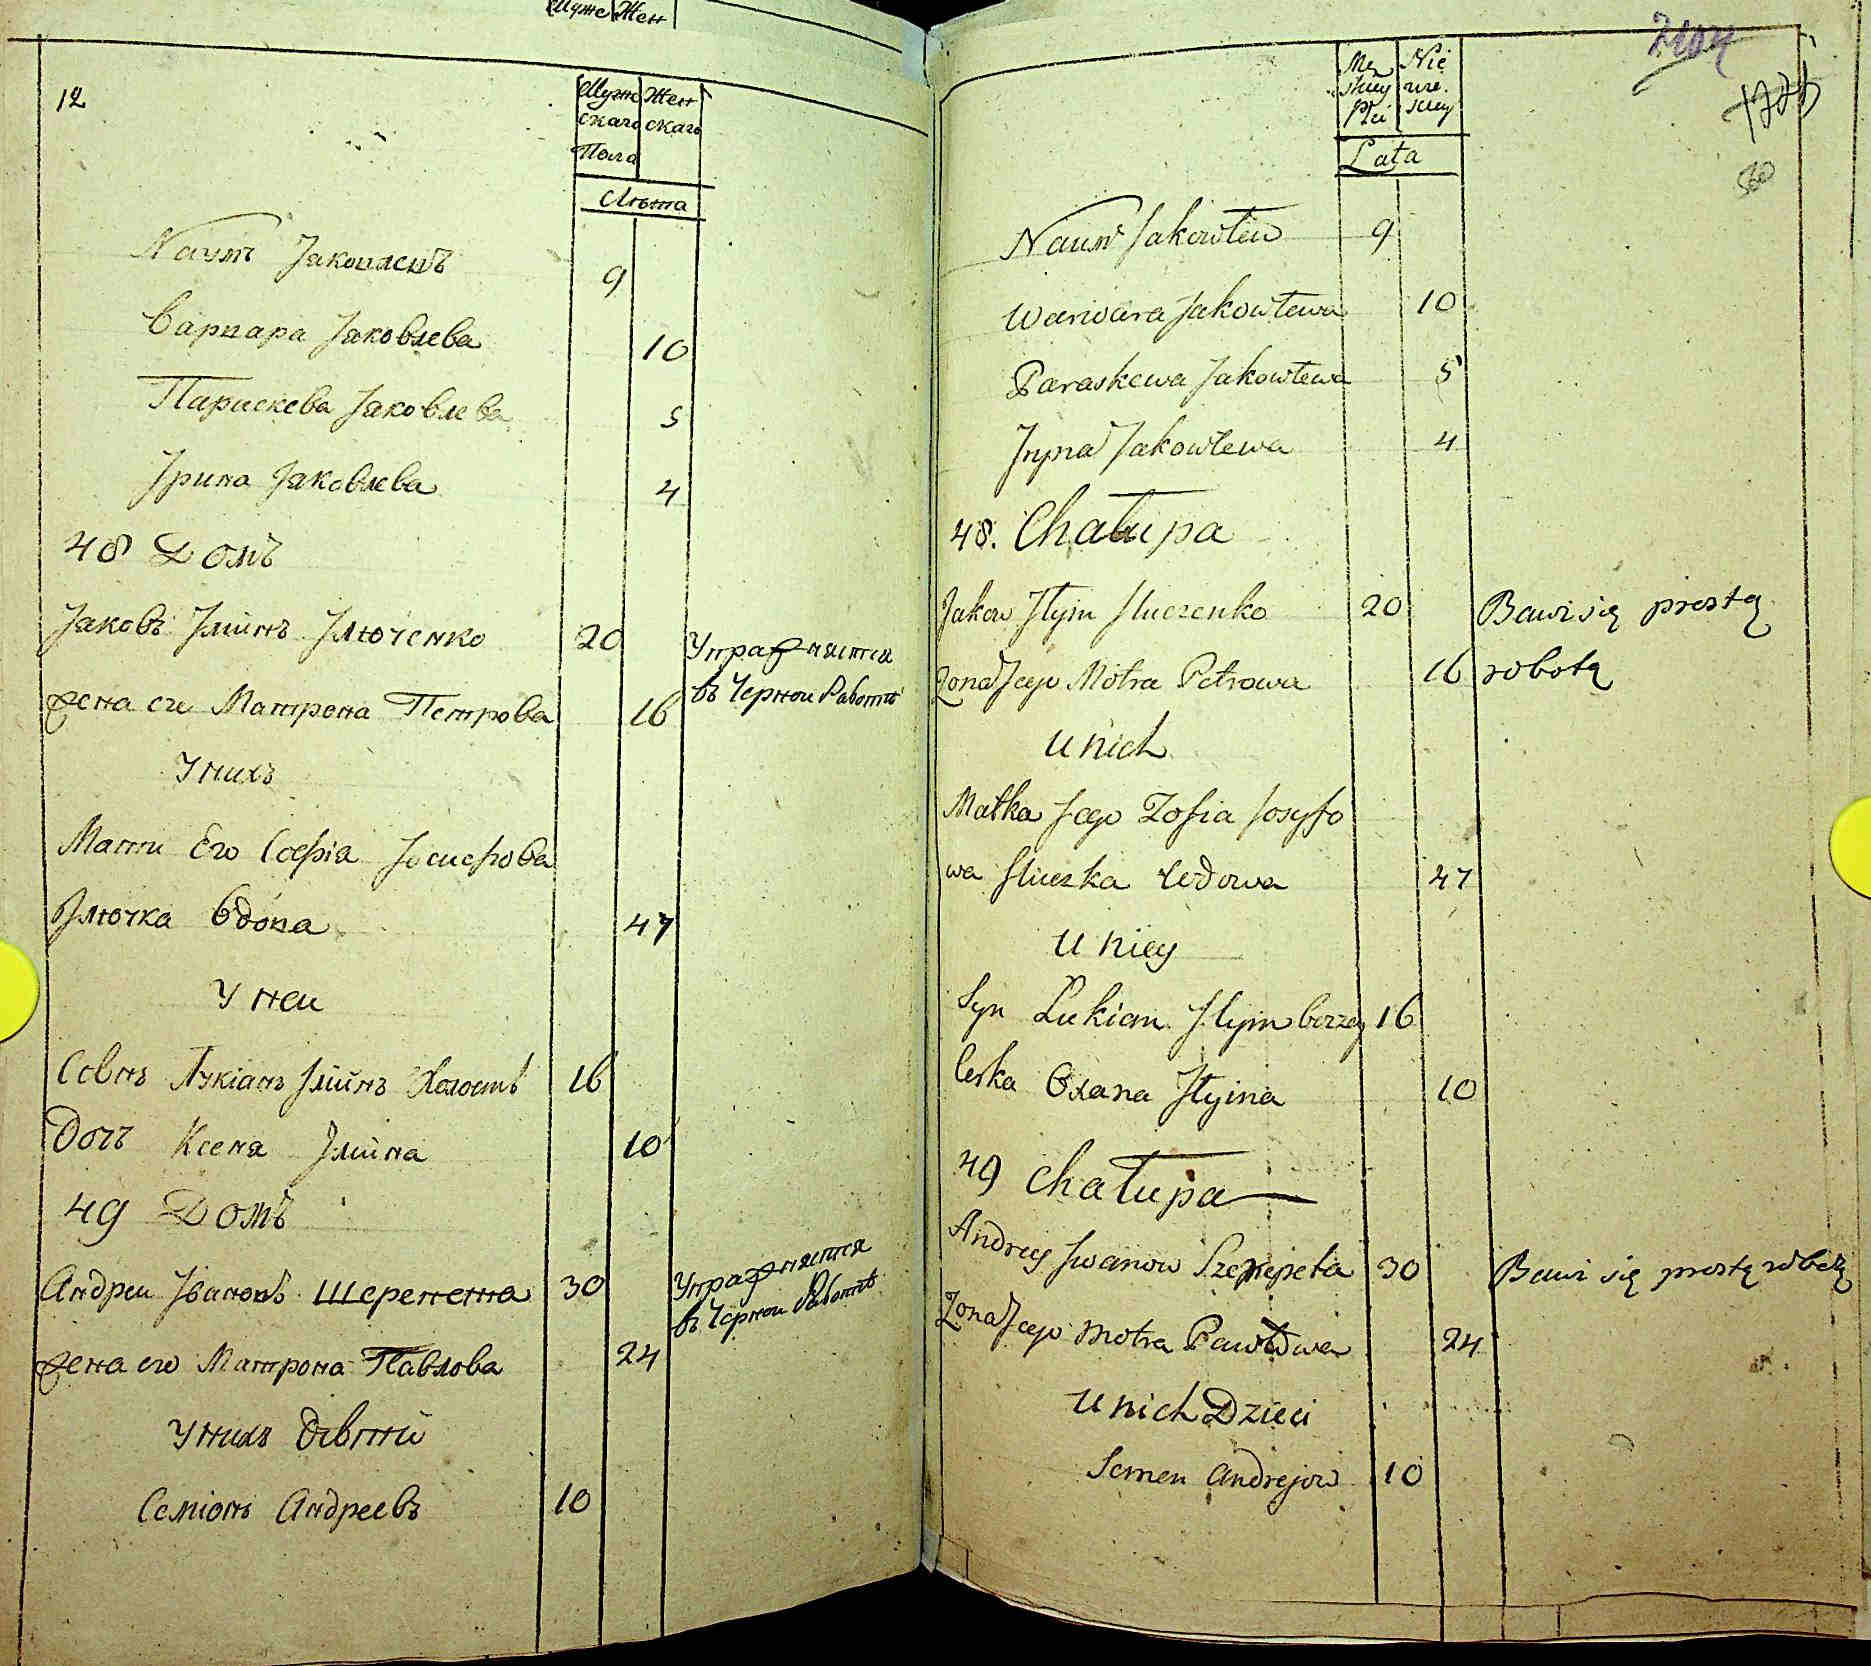 Муже Жен
12
Муже Жен
скаго скаго
Пола
Лѣта
Наумъ Jаковлевъ 9
Варвара Jаковлева 10
Параскева Jаковлева 5
Jрина Jаковлева 4
48 Домъ
Jаковъ Jлiинъ Jлюченко 20 Упражняится
жена ег Матрона Петрова 16 въ Чернои Работѣ
У нихъ
Мати Его Софiя Jосифова
Jлючка Вдова 47
У неи
Сынъ Лукiанъ Jлiинъ Холостъ 16
Дочъ Ксеня Jлiина 10
49 Домъ
Андреи Jвановъ Шерепета 30 Упражняится
въ Чернои Работѣ
жена его Матрона Павлова 24
У нихъ дѣтти
Семiонъ Андреевъ 10
Mez Nie
skiey wie.
Płci skiey
Lata
Naum Jakowlew 9
Warwara Jakowlewa 10
Paraskewa Jakowlewa 5
Jryna Jakowlewa 4
48. Chałupa
Jakow Jłyin Jluczenko 20 Bawi się prostą
Zona Jego Motra Petrowa 16 robotą
U nich
Matka Jego Zofia Josyfo
wa Jluczka wdowa 47
U niey
Syn Lukian Jlyin bezzen 16
Corka Oxana Jłyina 10
49 Chałupa
Andrey Jwanow Szerepeta 30 Bawi się prostą robotą
Zona Jego Motra Pawłowa 24
U nich Dzieci
Semen Andrejow 10